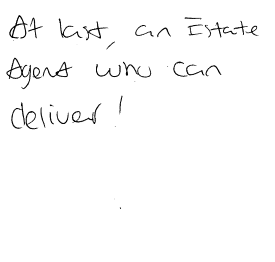 At last, an Estate
Agent who can
deliver!